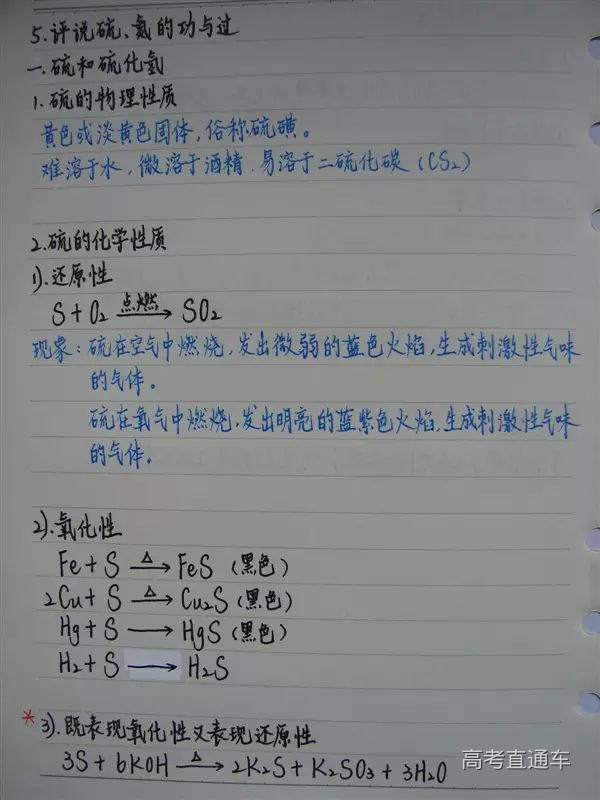 5.评说硫、氮的功与过
一.硫和硫化氢
1.硫的物理性质
黄色或淡黄色固体，俗称硫磺。
难溶于水，微溶于酒精.易溶于二硫化碳（CS2）
2.硫的化学性质
1).还原性
S+O2 点燃→ SO2
现象：硫在空气中燃烧，发出微弱的蓝色火焰，生成刺激性气味
的气体。
硫在氧气中燃烧，发出明亮的蓝紫色火焰，生成刺激性气味
的气体。
2).氧化性
Fe+S △→ FeS（黑色）
2Cu+S △→ Cu2S（黑色）
Hg+S → HgS（黑色）
H2+S → H2S
*3).既表现氧化性又表现还原性
3S+6KOH △→ 2K2S+K2SO3+3H2O
高考直通车